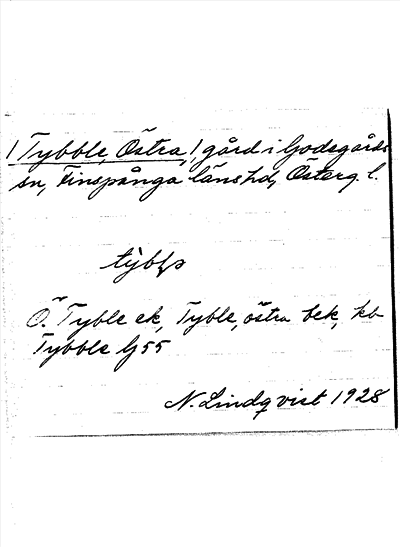 /Tybble, Östra,/ gård i Godegårds
sn, Finspånga läns hd, Österg. l.
Ö. Tyble ek, Tyble, östra bek, kb
Tybble G55
N. Lindqvist 1928